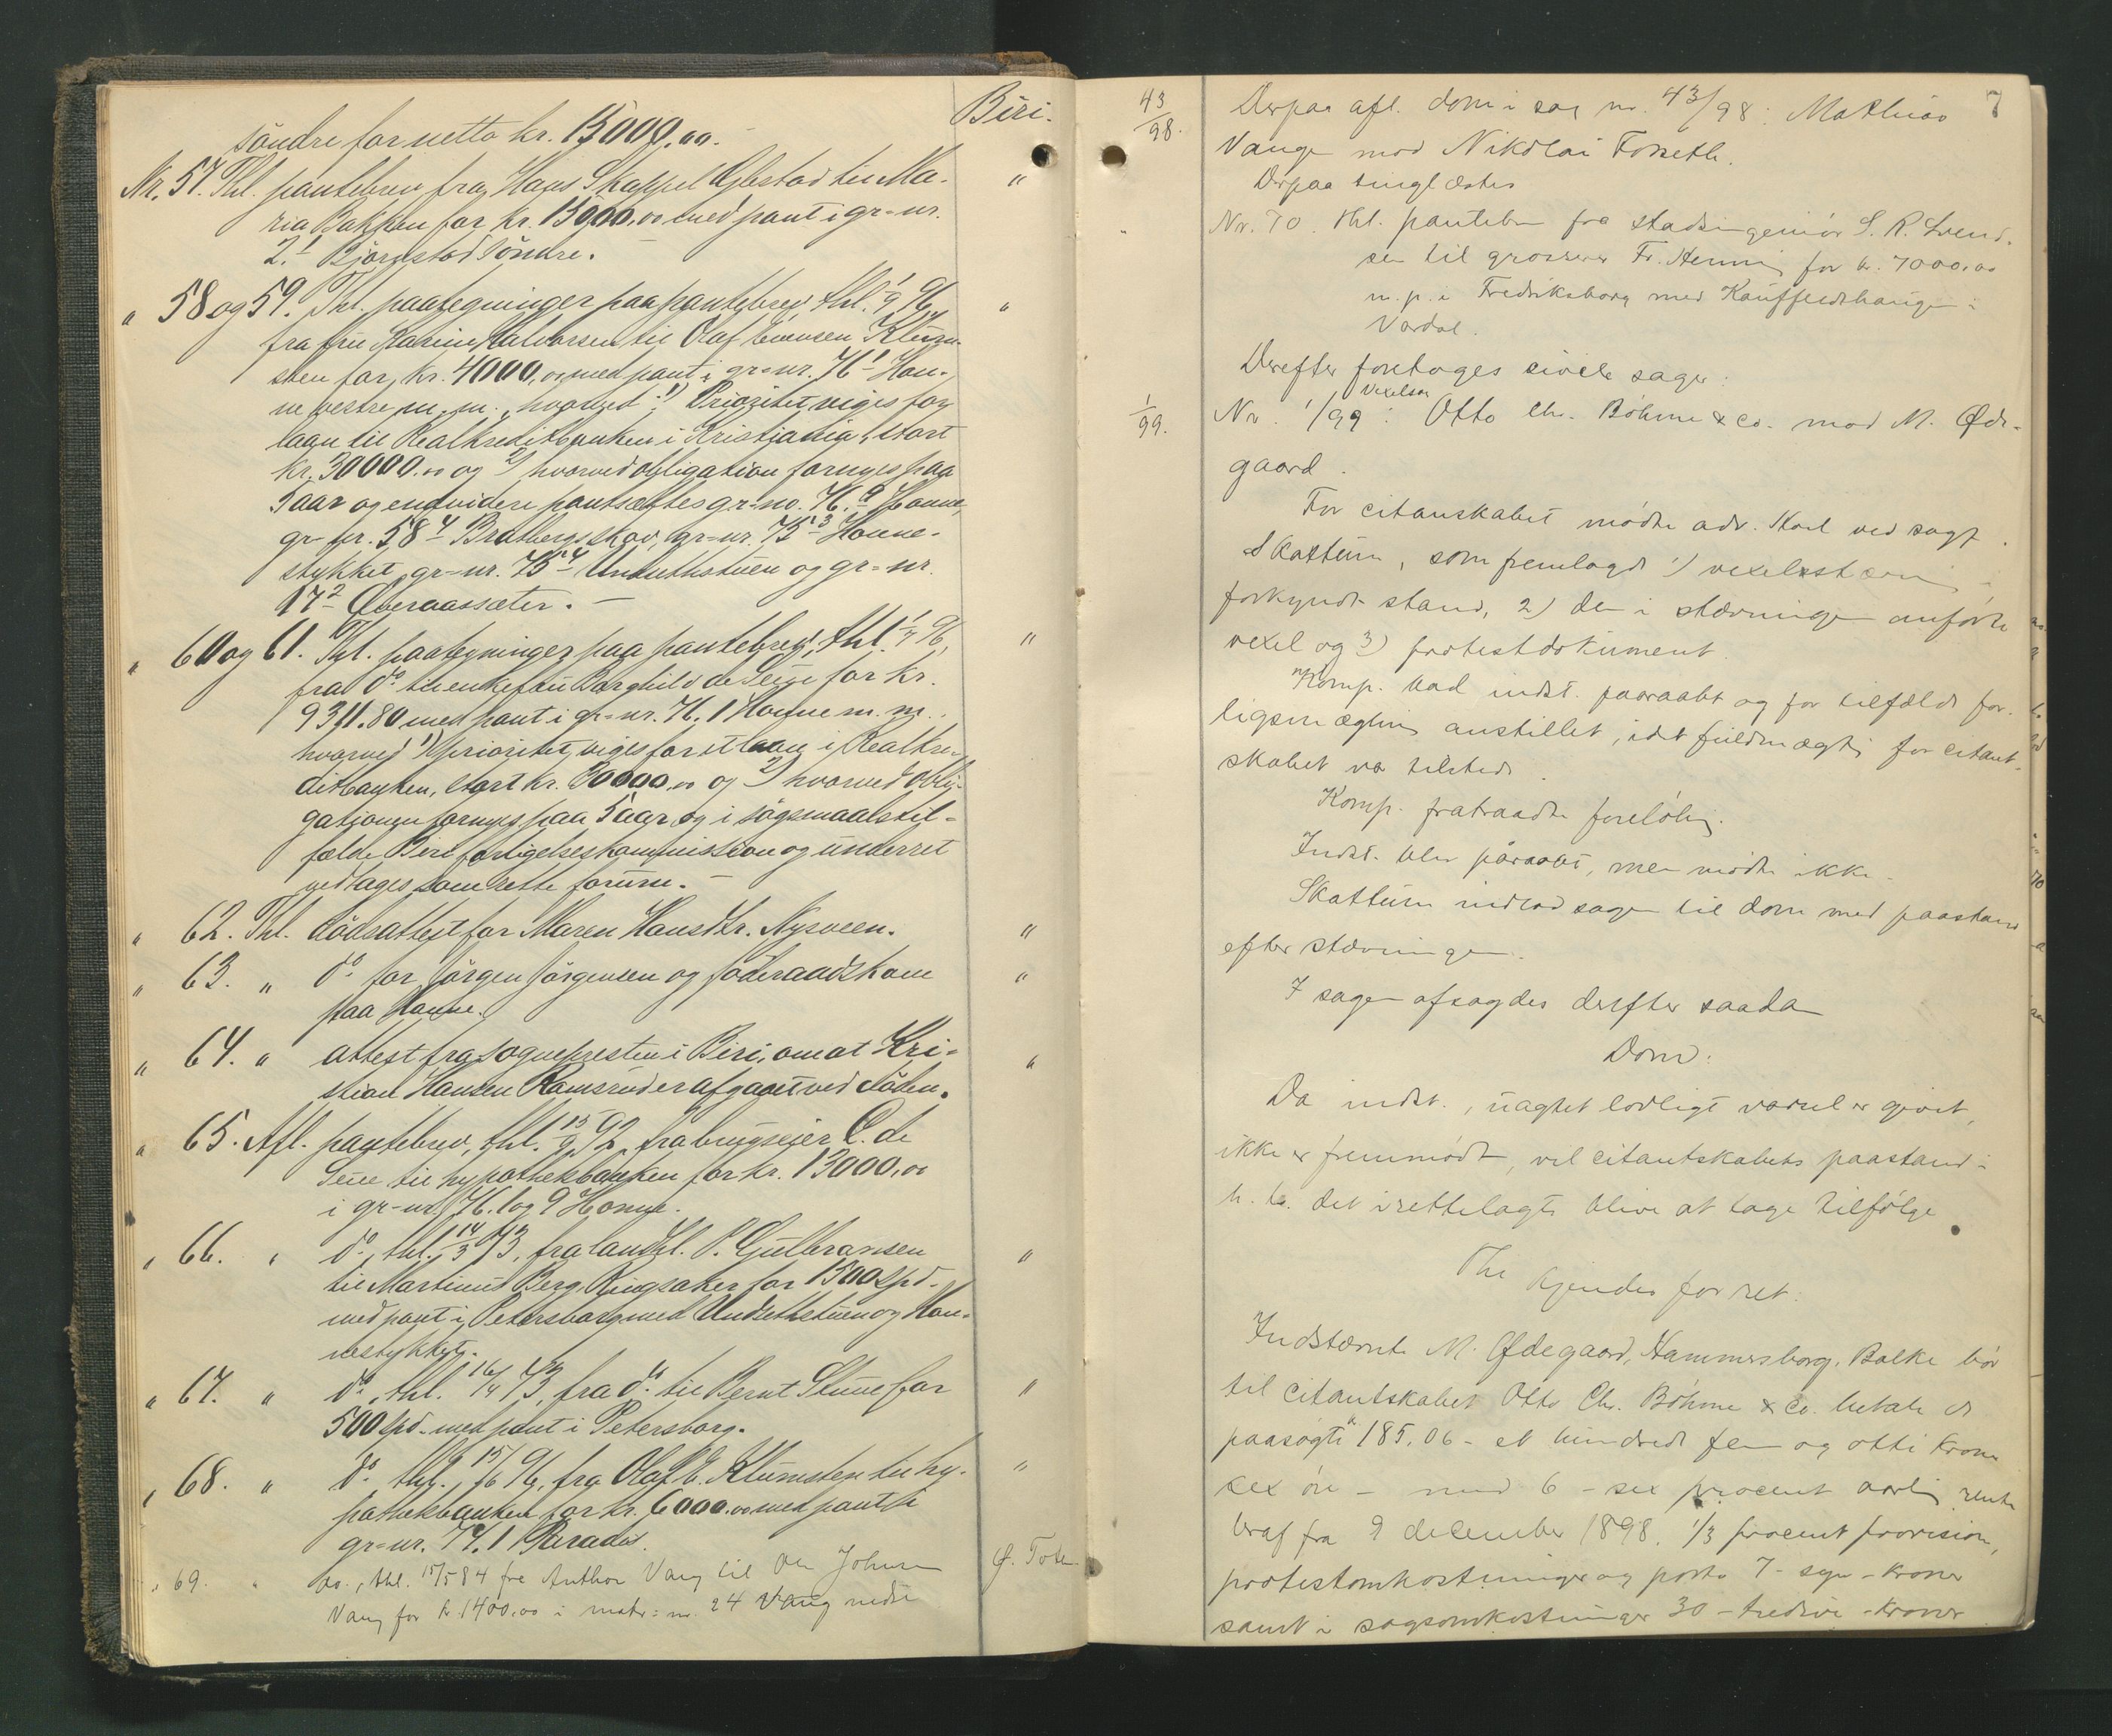 Biri.
söndre for netto kr. 15000,00.
Nr. 57. Thl. pantebrev fra Hans Skappel Gjestad til Ma-
ria Bakken for kr. 15000,00 med pant i gr=nr.
2.1 Bjørnstad söndre.
" 58 og 59. Thl. paategninger paa pantebrev, thl. 1/9 96,
fra fru Karine Halvorsen til Olaf Evensen Klum-
sten for kr. 4000,00 med pant i gr=nr. 76.1 Hon-
ne vestre m. m. hvorved 1) Prioritet viges for
laan til Realkreditbanken i Kristiania, stort
kr. 30000.00 og 2) hvorved obligation fornyes paa
5 aar og endvidere pantsættes gr=no. 76.9 Honne,
gr=nr. 58.4 Bratbergsskov, gr=nr. 75.3 Honne-
stykket, gr=nr. 75.4 Undsethstuen og gr=nr.
17.2 Øveraassæter.
" 60 og 61. Thl. paategninger paa pantebrev, thl. 1/9 96,
fra do til enkefru Borghild de Seue for kr.
9311.80 med pant i gr=nr. 76.1 Honne m. m.
hvorved 1) prioritet viges for et laan i Realkre-
ditbanken, stort kr. 30000,00 og 2) hvorved obli-
gationen fornyes paa 5 aar og i søgsmaalstil-
fælde Biri forligelseskommission og underret
vedtages som rette forum.
" 62. Thl. dödsattest for Maren Hansdtr. Nysveen.
" 63. " do for Jørgen Jørgensen og föderaadskone
paa Honne.
" 64. " attest fra sognepresten i Biri, om at Kri-
stian Hansen Ramsrud er afgaaet ved döden.
" 65. Afl. pantebrev, thl. 15/9 92, fra brugseier C. de
Seue til hypothekbanken for kr. 13000,00
i gr=nr. 76.1 og 9 Honne.
" 66. " do, thl. 14/3 73, fra landhl. P. Gulbransen
til Martinus Berg, Ringsaker for 1500 spd.
med pant i Petersborg med Undsethstuen og Hon-
nestykket.
" 67. " do, thl. 16/4 73, fra do til Bernt Stuue for
500 spd. med pant i Petersborg.
" 68. " do thl. 15/6 96, fra Olaf E. Klumsten til hy-
pothekbanken for kr. 6000.00 med pant i
gr=nr. 74.1 Paradis.
" 69. " do., thl. 15/5 84 fra Anthon Vang til Ole Johnsen Ø. Toten
Vang for kr. 1400.00 i matr=nr. 24 Vang nedre
7
43/98. Derpaa afl. dom i sag nr. 43/98: Mathias
Vange mod Nikolai Forseth.
Derpaa tinglæstes
Nr. 70. thl. pantebr fra stadsingeniör S. R. Svend-
sen til grosserer Fr. Henni for kr. 7000.00
m. p. i Fredriksborg med Kauffeldthaugen i
Vardal.
Derefter foretoges civile sager:
1/99. Nr. 1/99: Vexelsag Otto Chr. Böhme & co. mod M. Øde-
gaard.
For citanskabet mödte adv. Skeel ved sagf.
Skattum, som fremlagde 1) vexelsstævning i
forkyndt stand, 2) den i stævningen anførte
vexel og 3) protestdokument.
Komp. bad indst. paaraabt og for tilfælde for-
ligsmægling anstillet, idet fuldmægtig for citant-
skabet var tilstede.
Komp. fratraadte foreløbig.
Indst. blev påraabt, men mödte ikke.
Skattum indlod sagen til dom med paastand
efter stævningen.
I sagen afsagdes derefter saadan
Dom:
Da indst., uagtet lovligt varsel er givet,
ikke er fremmödt, vil citantskabets paastand i
h. t. det irettelagte blive at tage tilfölge.
Thi kjendes for ret:
Indstævnte M. Ødegaard, Hammersborg, Balke bör
til citantskabet Otto Chr. Böhme & Co. betale de
paasøgte kr 185,06 – et hundrede fem og otti kroner
sex öre – med 6 – sex procent aarlig rente
heraf fra 9 december 1898. 1/3 procent provision,
protestomkostninger og porto 7 – syv – kroner
samt i sagsomkostninger 30 – tredive – kroner